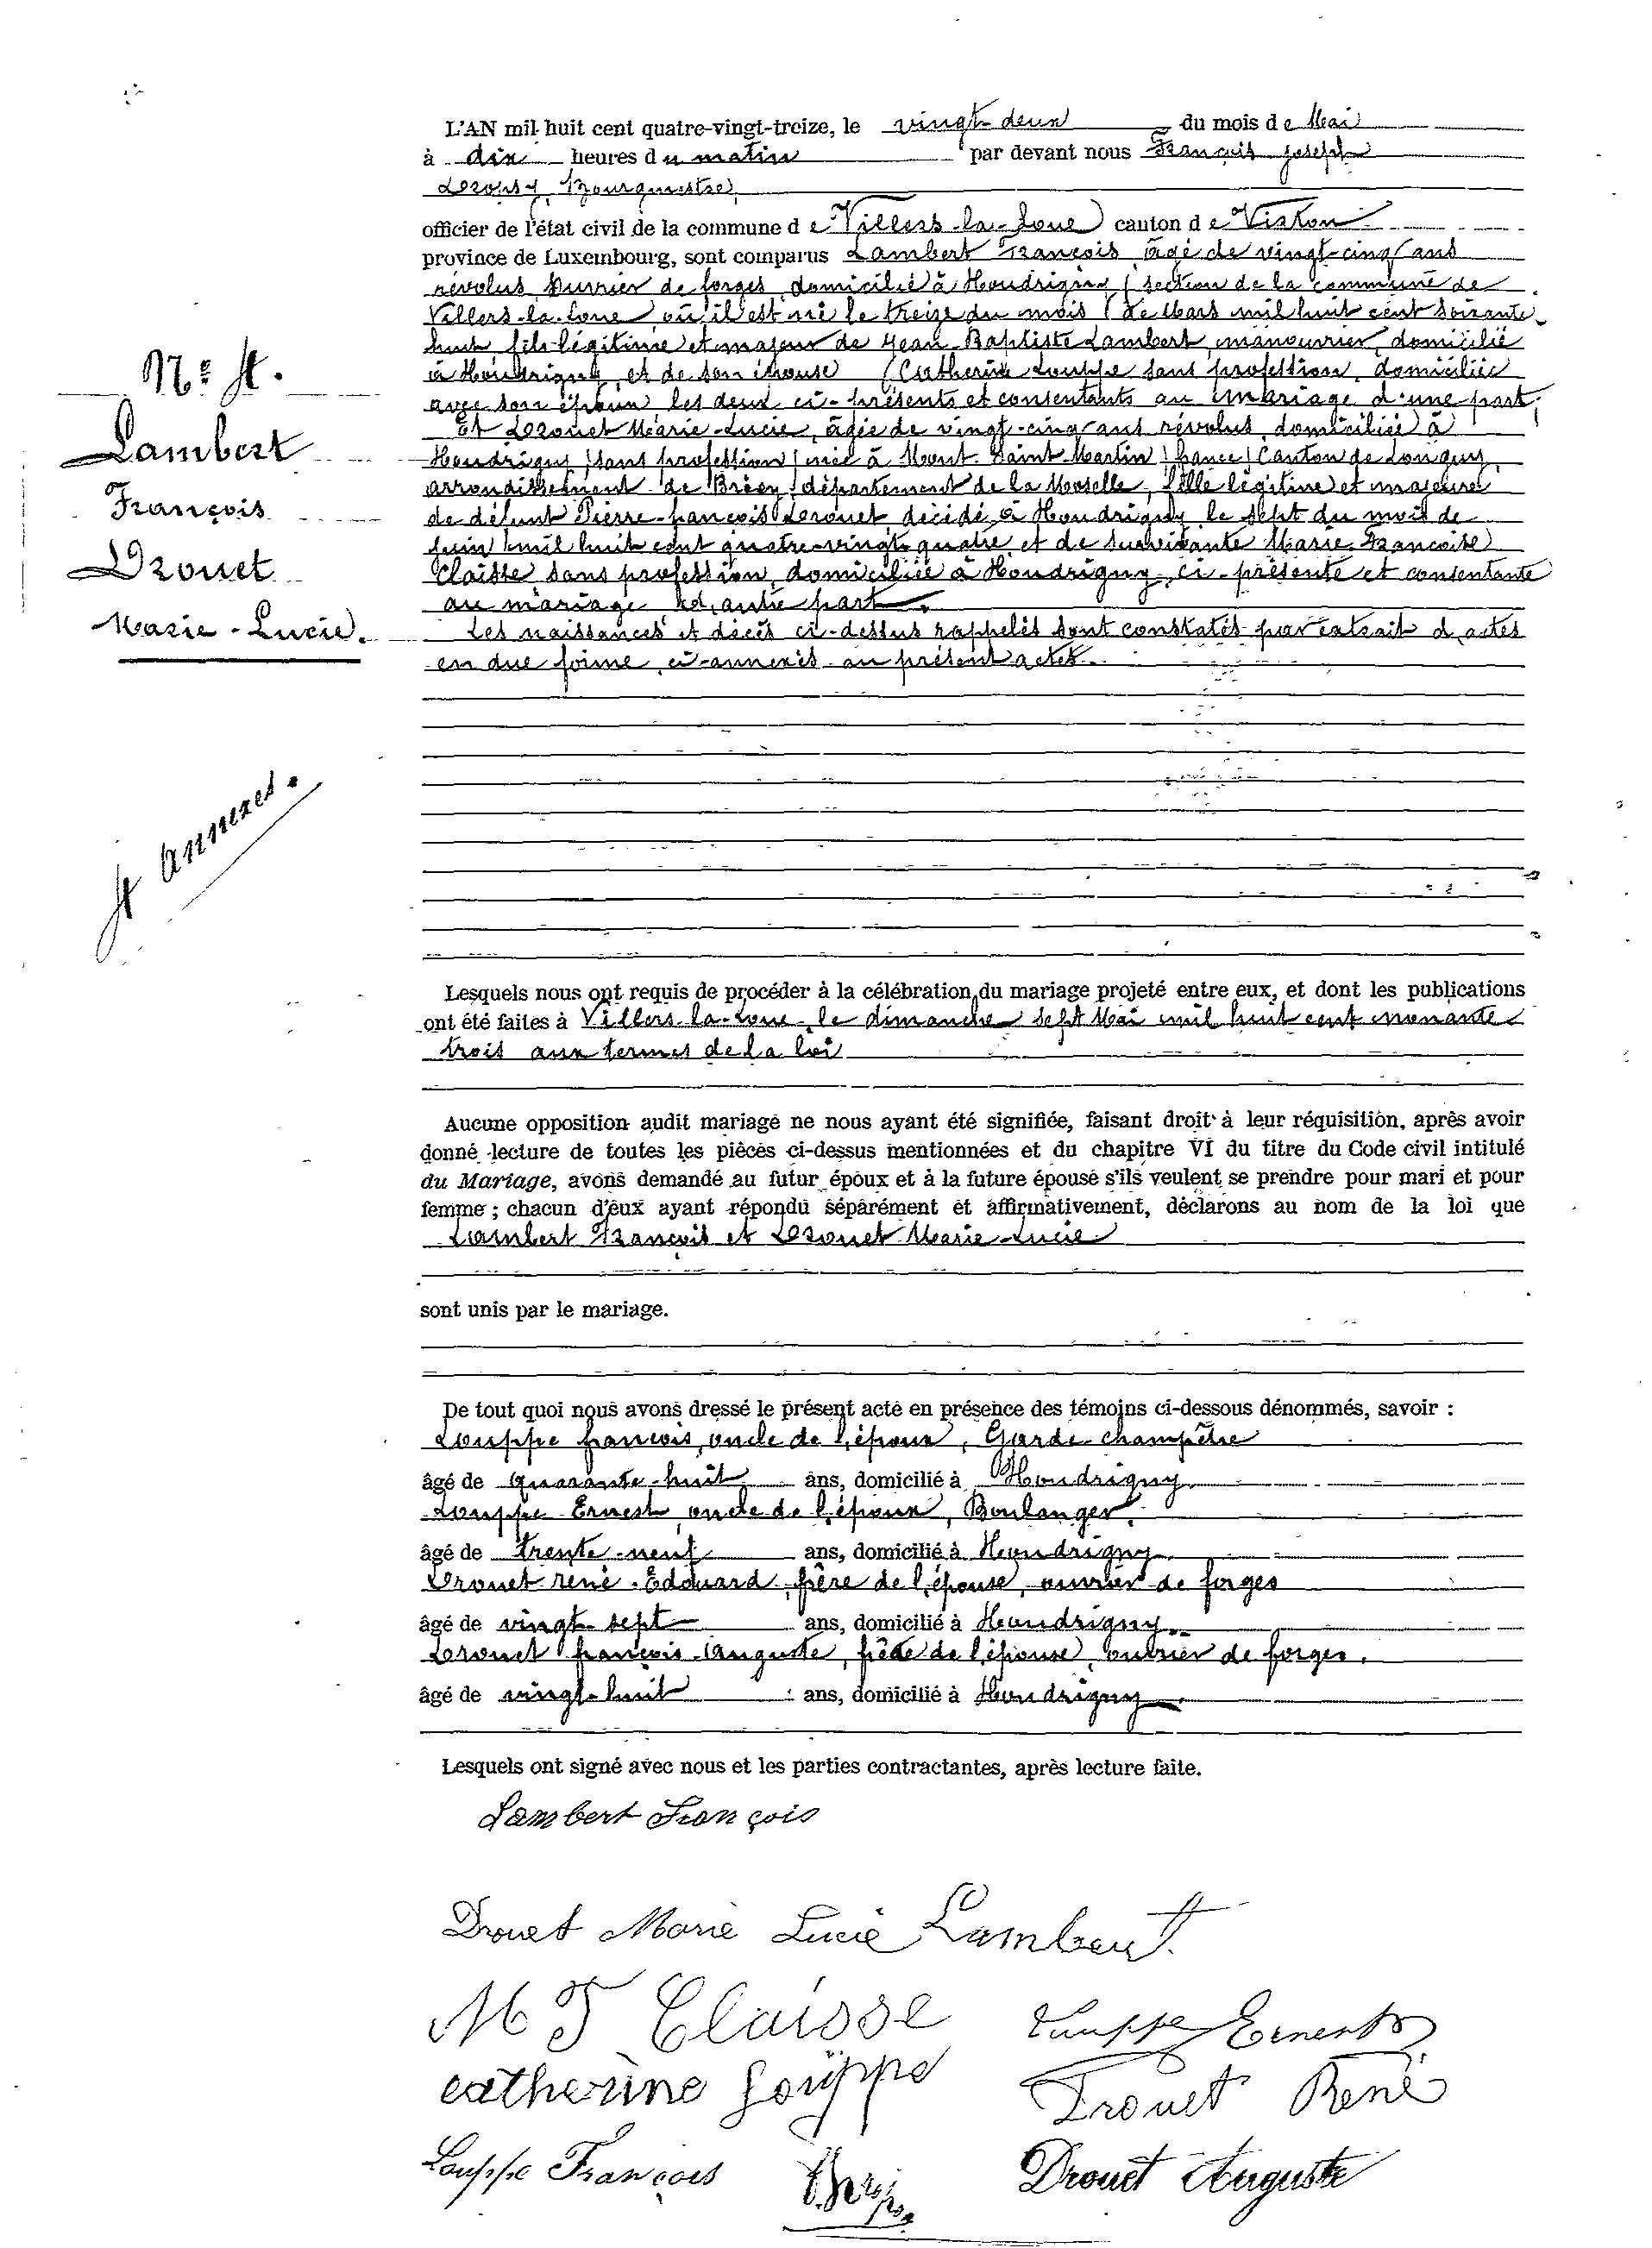 L'AN mil huit cent quatre-vingt-treize, le vingt-deux du mois de Mai
à dix heures du matin par devant nous François Joseph
Bourgmestre
officier de l'état civil de la commune de Villers-la-Loue canton de Virton
province de Luxembourg, sont comparus Lambert François, âgé de vingt-cinq ans
révolus, ouvrier de forges, domicilié à Houdrigny (section de la commune de
Villers-la-Loue, où il est né le treize du mois de Mars mil huit cent soixante-
huit, fils légitime et majeur de Jean Baptiste Lambert, manouvrier, domicilié
à Houdrigny, et de son épouse Catherine Louppe sans profession, domiciliée
avec son époux, les deux ci-présents et consentants au mariage d'une part;
Et Drouet Marie-Lucie, âgée de vingt-cinq ans révolus, domiciliée à
Houdrigny, sans profession, née à Mont-Saint-Martin (france) Canton de Longwy,
arrondissement de Briey, département de la Moselle, fille légitime et majeure
de défunt Pierre-françois Drouet, décédé à Houdrigny le sept du mois de
juin mil huit cent quatre-vingt-quatre, et de survivante Marie-Françoise
Claisse sans profession, domiciliée à Houdrigny, ci-présente et consentante
au mariage, d'autre part.
Les naissances et décès ci-dessus rappelés sont constatés par extrait d'actes
en due forme, ci-annexés au présent acte.
N° 4.
Lambert
François
Drouet
Marie-Lucie.
4 annexes.
Lesquels nous ont requis de procéder à la célébration du mariage projeté entre eux, et dont les publications
ont été faites à Villers-la-Loue, le dimanche sept Mai mil huit cent nonante-
trois aux termes de la loi
Aucune opposition audit mariage ne nous ayant été signifiée, faisant droit à leur réquisition, après avoir
donné lecture de toutes les pièces ci-dessus mentionnées et du chapitre VI du titre du Code civil intitulé
du Mariage, avons demandé au futur époux et à la future épouse s'ils veulent se prendre pour mari et pour
femme ; chacun d'eux ayant répondu séparément et affirmativement, déclarons au nom de la loi que
Lambert François et Drouet Marie-Lucie
sont unis par le mariage.
De tout quoi nous avons dressé le présent acte en présence des témoins ci-dessous dénommés, savoir :
Louppe françois, oncle de l'époux, Garde-champêtre
âgé de quarante-huit ans, domicilié à Houdrigny
Louppe Ernest, oncle de l'époux, Boulanger
âgé de trente-neuf ans, domicilié à Houdrigny
Drouet rené-Edouard, frère de l'épouse, ouvrier de forges
âgé de vingt-sept ans, domicilié à Houdrigny
Drouet françois-Auguste, frère de l'épouse, ouvrier de forges.
âgé de vingt-huit ans, domicilié à Houdrigny
Lesquels ont signé avec nous et les parties contractantes, après lecture faite.
Lambert François
Drouet Marie Lucie Lambert
M F Claisse Louppe Ernest
catherine Louppe Drouet René
Louppe François Drouet Auguste